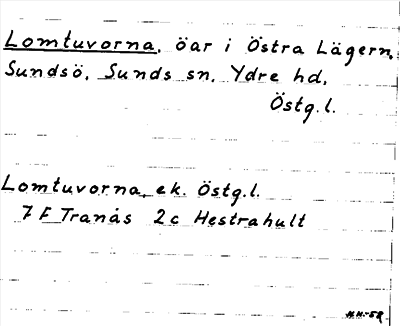 Lomtuvorna, öar i Östra Lägern,
Sundsö, Sunds sn, Ydre hd,
Östg.l.
Lomtuvorna, ek. Östg.l.
7 F Tranås 2c Hestrahult
H.H.-58